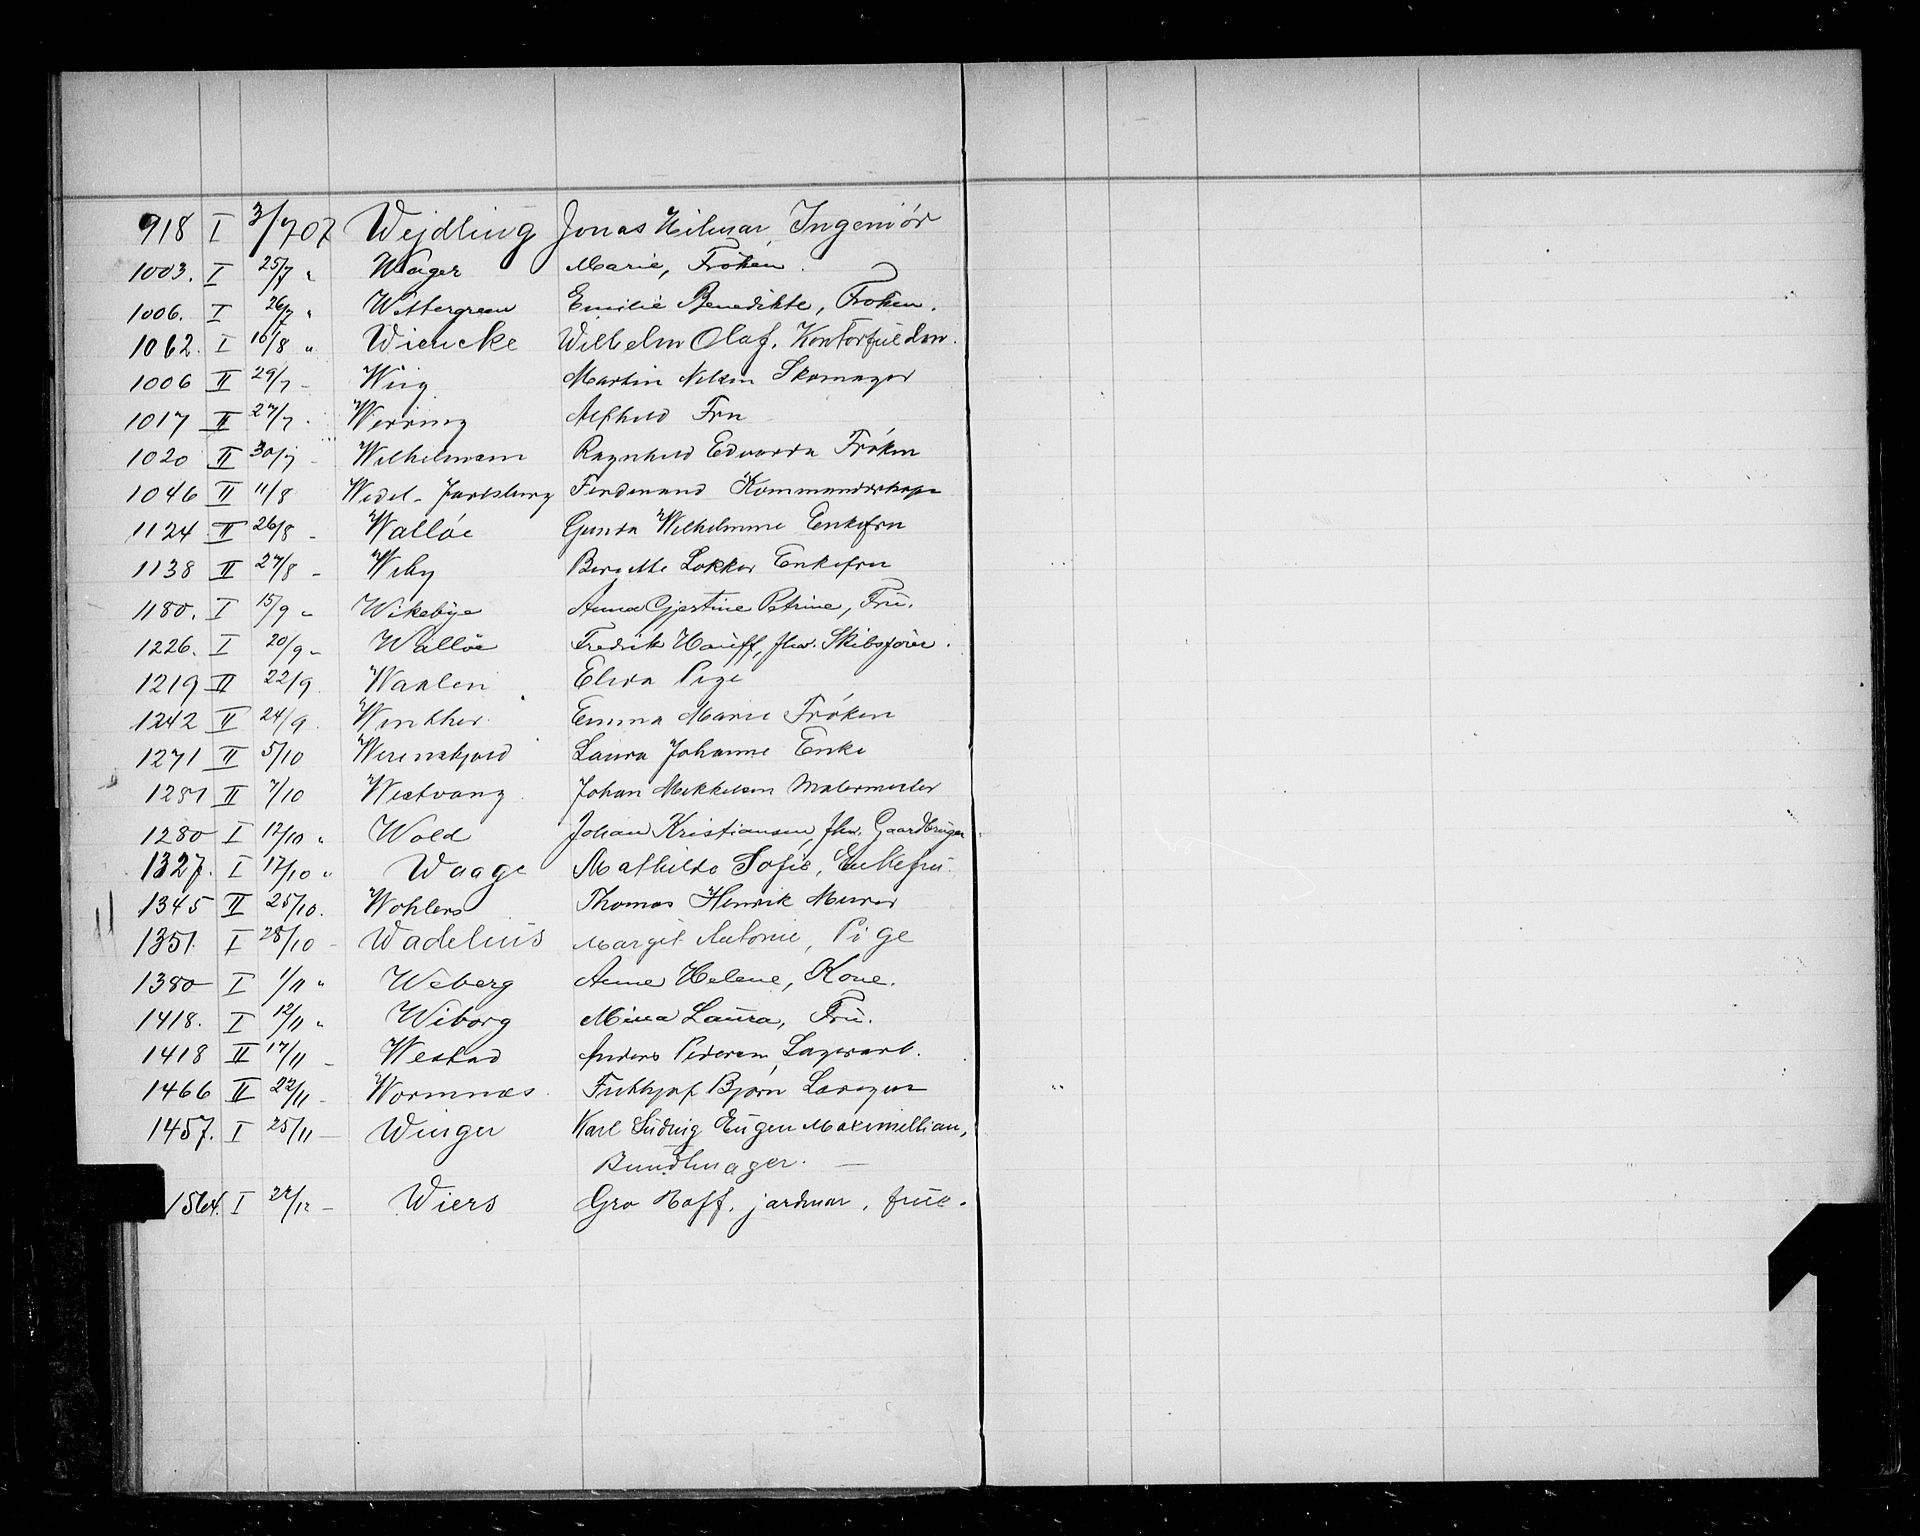 918 I 3/7 07 Wejdling Jonas Hilmar, Ingeniør
1003. I 25/7 " Wager Marie, Frøken.
1006. I 26/7 " Wettergreen Emilie Benedikte, Frøken.
1062. I 16/8 " Wiencke Wilhelm Olaf, Kontorfuldm.
1006 II 29/7 - Wiig Martin Nilsen Skomager
1017 II 27/7 - Werring Alfhild Fru
1020 II 30/7 - Wilhelmsen Ragnhild Edvarda Frøken
1046 II 11/8 Wedel-Jarlsberg Ferdinand Kommandørkapt
1124 II 26/8 - Walløe Gunda Wilhelmine Enkefru
1138 II 27/8 - Wiby Beruette Løkker Enkefru
1180. I 15/9 " Wikebye Anna Gjertine Petrine, Frü.
1226. I 20/9 " Walløe Fredrik Hauff, fhv. Skibsfører.
1219 II 22/9 Waalen Elida Pige
1242 II 24/9. Winther Emma Marie Frøken
1271 II 5/10 Werenskjold Laura Johanne Enke
1251 II 7/10 Westvang Johan Mikkelsen Malermester
1280 I 12/10 " Wold Johan Kristiansen, fhv. Gaardbruger
1327. I 17/10 " Waage Mathilde Sofie, Enkefrü.
1345 II 25/10. Wohlers Thomas Henrik Murer
1351. I 28/10 - Wadelius Margit Antonie, Pige
1380 I 1/11 " Weberg Anne Helene, Kone.
1418. I 12/11 " Wiborg Mina Laura, Frü.
1418 II 17/11 - Westad Anders Pedersen, Lagerarb.
1466 II 22/11 - Wormnæs Frithjof Bjørn
1457. I 25/11 - Winger Karl Ludvig Eugen Maximillian,
Bundtmager. —
1564. I 22/12 - Wiers Gro Roff, jordmor, frue.